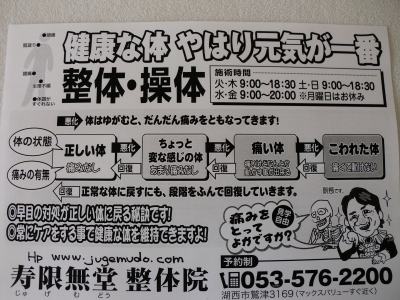 健康な体 やはり元気が一番
整体・操体
施術時間
火・木 9:00〜18:30 土・日 9:00〜18:30
水・金 9:00〜20:00 ※月曜日はお休み
悪化 体はゆがむと、だんだん痛みをともなってきます!
体の状態
痛みの有無
正しい体
痛みなし
悪化
回復
ちょっと
変な感じの体
あまり痛みなし
悪化
回復
痛い体
悪化
回復
こわれた体
痛くて動けない
回復 正常な体に戻すにも、段階をふんで回復していきます。
◎早目の対処が正しい体に戻る秘訣です!
◎常にケアをする事で健康な体を維持できますよ!
痛みを
とって
よかですか?
見学
自由
院長です。
Hp www.jugemudo.com
寿限無堂 整体院
じゅげむどう
予約制
053-576-2200
湖西市鷲津3169(マックスバリューすぐ近く)